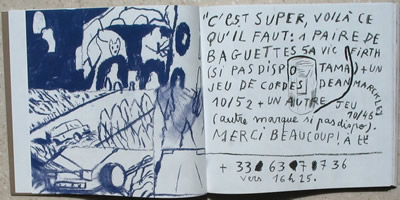 "C'EST SUPER, VOILÀ CE
QU'IL FAUT: 1 PAIRE DE
BAGUETTES 5A VIC FIRTH
(SI PAS DISPO TAMA) + UN
JEU DE CORDES DEAN MARKLEY
10/52 + UN AUTRE JEU
10/46
(autre marque si pas dispo).
MERCI BEAUCOUP! À tt
+ 33 63 7 736
vers 16h25.